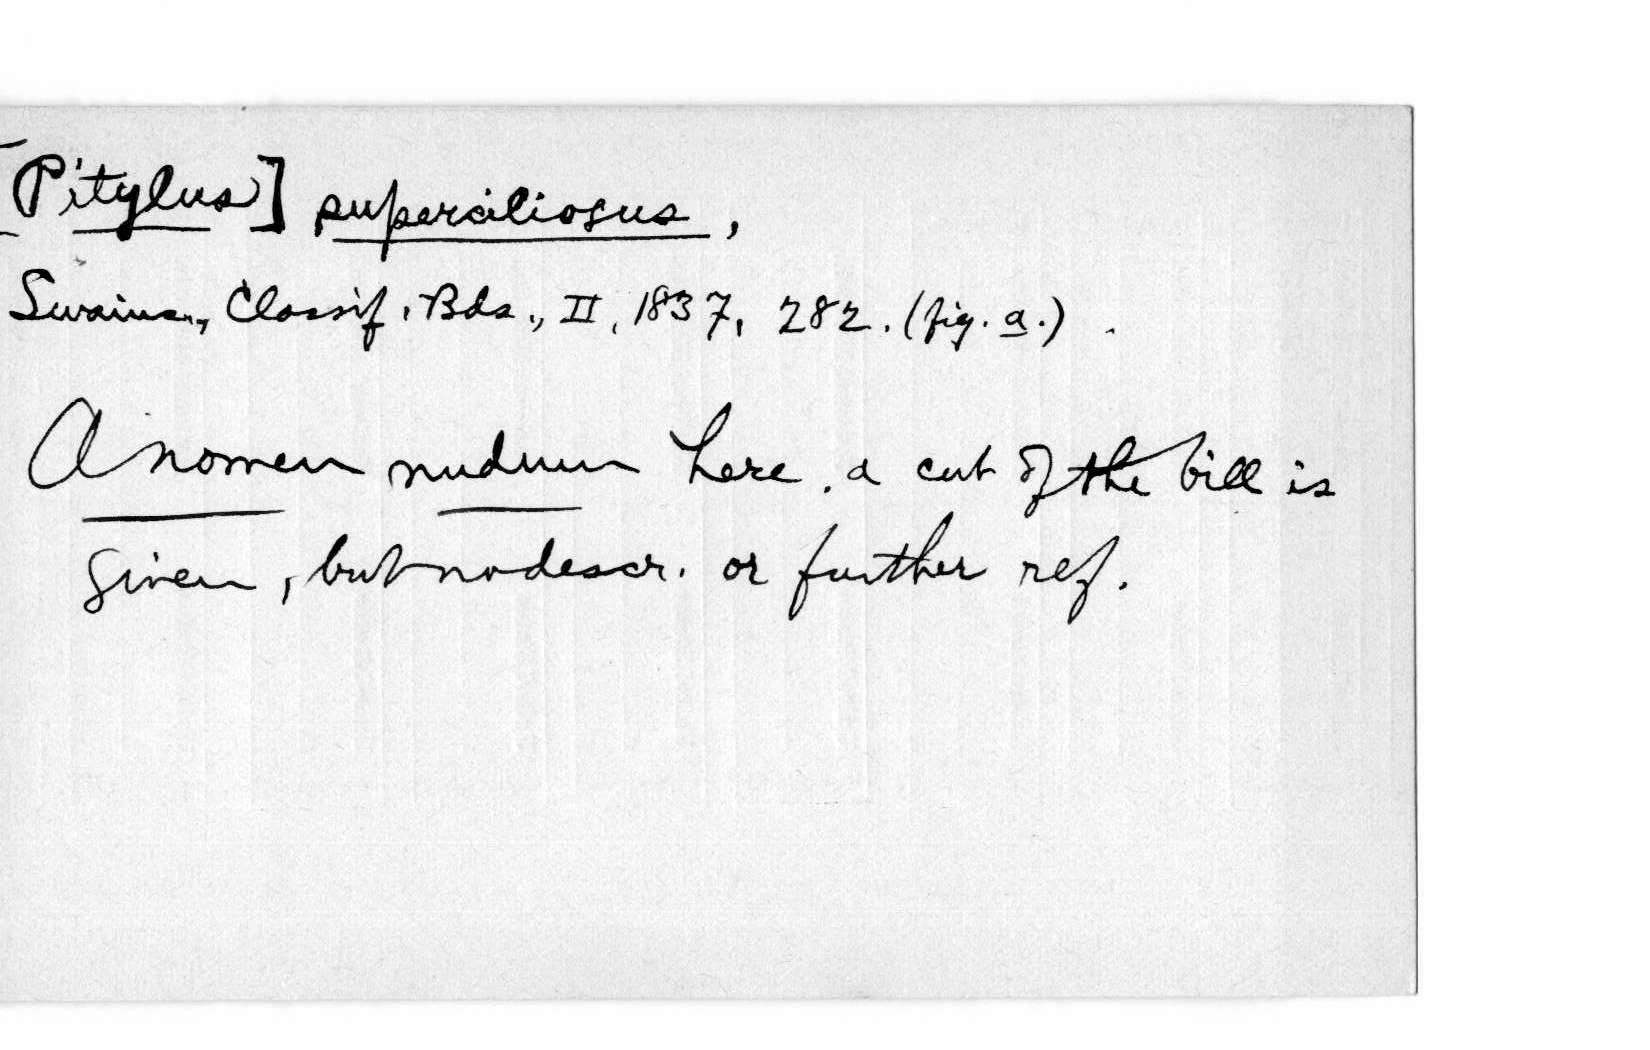 [Pitylus] superciliosus,
Swains., Classif. Bds., II, 1837, 282. (fig. a.).
A nomen nudum here. a cut of the bill is
given, but no descr. or further ref.